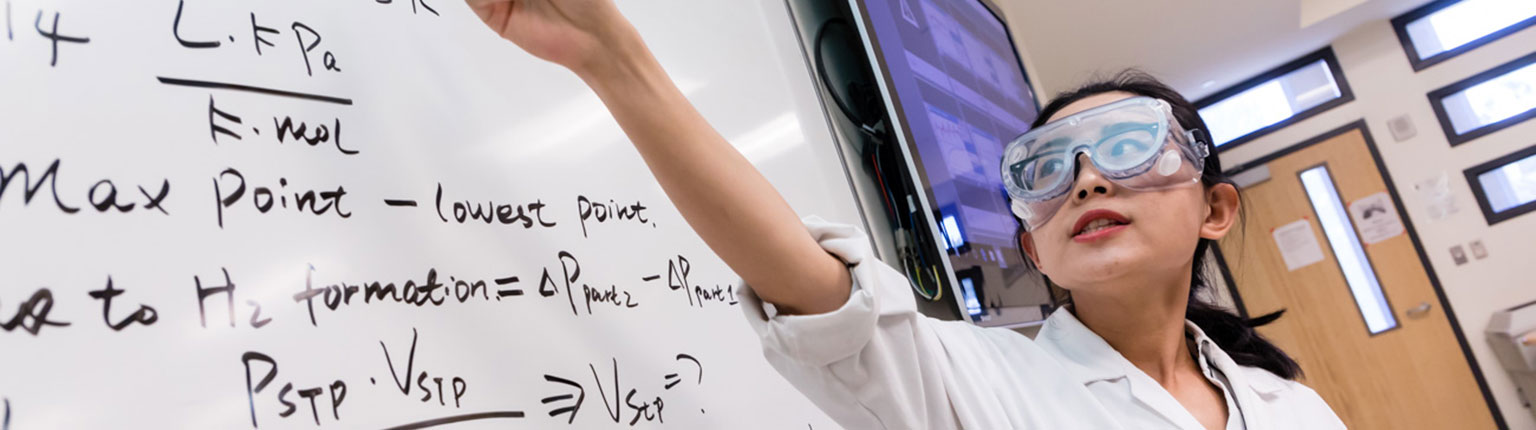 14 L.kPa
K.mol
Max point - lowest point.
to H₂ formation = ΔPpart2 - ΔPpart1
PSTP · VSTP ⇒ VSTP = ?